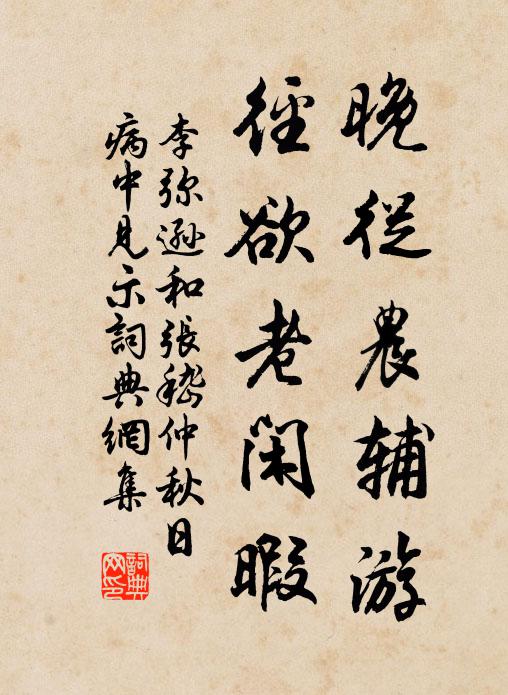 晚從農辅游
徑欲老閑暇
李弥遜和張嵇仲秋日
病中見示詞典網集
詞典
网印